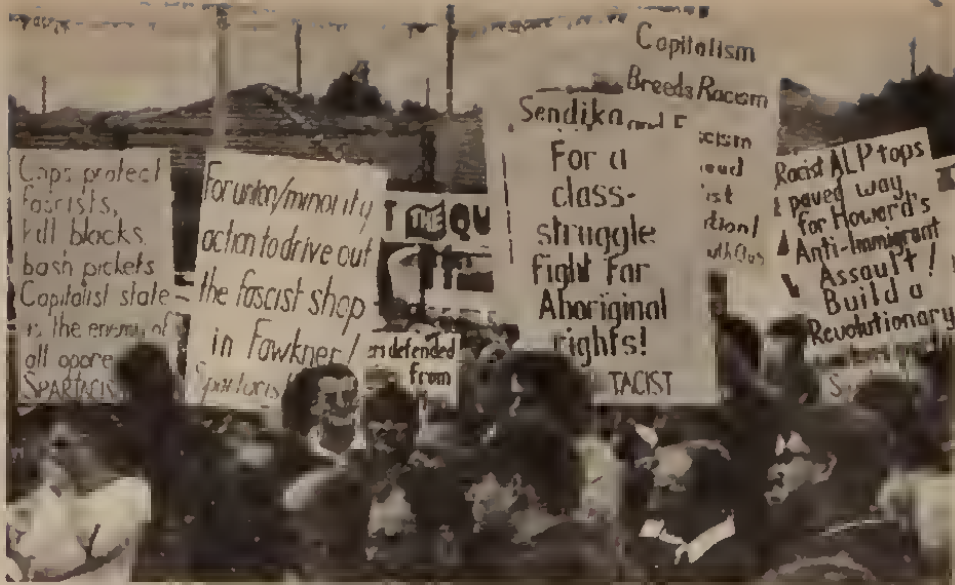 Cops protect
fascists,
kill blacks,
bash pickets
Capitalist state
is the enemy of
all
SPARTACIS
For union/minority
action to drive out
the fascist shop
in Fawkner!
Spartacis
T THE QU
defended
from
Sendika and
For a
class-
struggle
fight for
Aboriginal
rights!
TACIST
Capitalism
Breeds Racism
Racist ALP tops
paved way
for Howard's
Anti-Immigrant
Assault!
Build a
Revolutionary